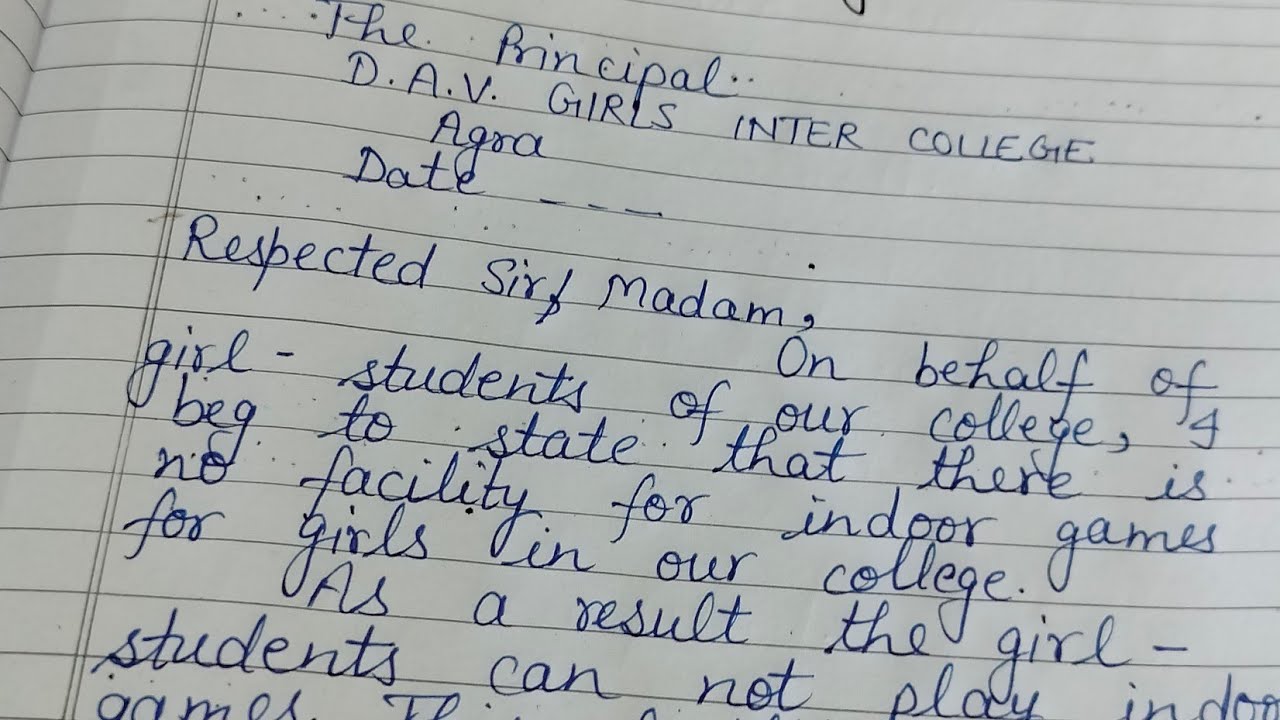 The Principal..
D.A.V. GIRLS INTER COLLEGE
Agra
Date ---
Respected Sir/ Madam,
On behalf of
girl - students of our college, I
beg to state that there is
no facility for indoor games
for girls in our college.
As a result the girl -
students can not play indoor
games.